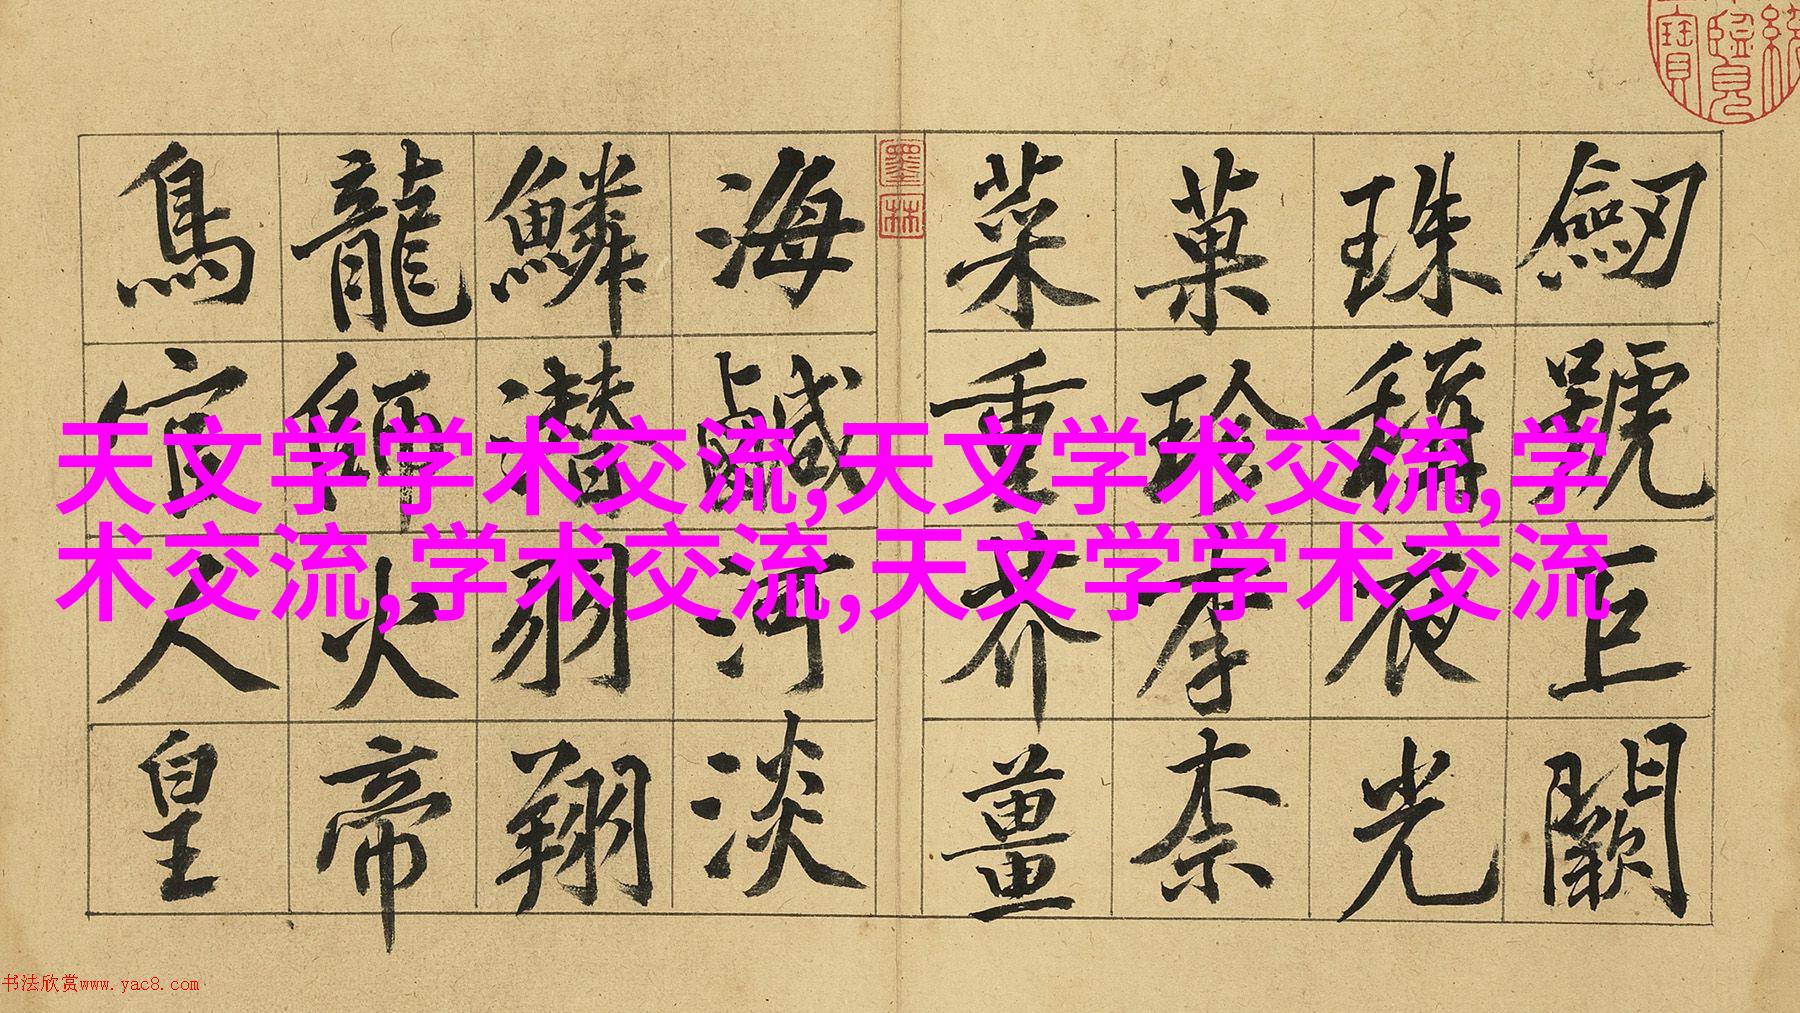 劒號巨闕
珠稱夜光
菓珍李柰
菜重芥薑
墨林
海鹹河淡
鱗潛羽翔
龍師火帝
鳥官人皇
天文学学术交流,天文学术交流,学
术交流,学术交流,天文学学术交流
书法欣赏www.yac8.com